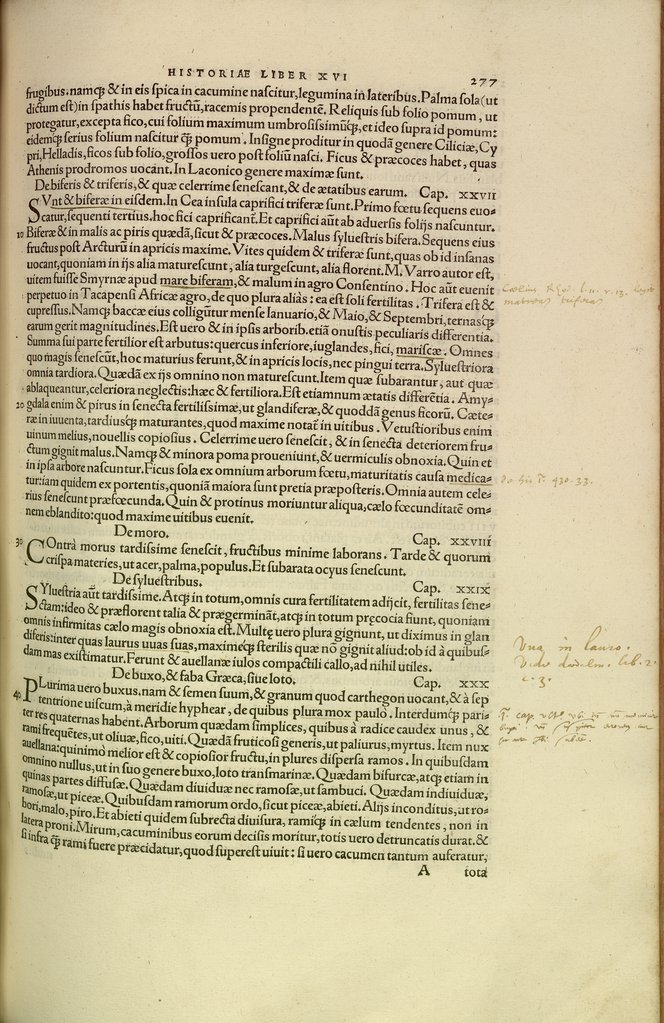 HISTORIAE LIBER XVI
277
frugibus. namq; & in eis spica in cacumine nascitur, legumina in lateribus. Palma sola (ut
dictum est) in spathis habet fructũ, racemis propendentẽ. Reliquis sub folio pomum, ut
protegatur, excepta fico, cui folium maximum umbrosissimũq;, et ideo supra id pomum:
eidemq; serius folium nascitur q̃ pomum. Insigne proditur in quodã genere Ciliciæ, Cy
pri, Helladis, ficos sub folio, grossos uero post foliũ nasci. Ficus & præcoces habet, quas
Athenis prodromos uocãt. In Laconico genere maximæ sunt.
De biferis & triferis, & quæ celerrime senescant, & de ætatibus earum. Cap. XXVII
SVnt & biferæ in eisdem. In Cea insula caprifici triferæ sunt. Primo fœtu sequens euo-
catur, sequenti tertius. hoc fici caprificantẽ. Et caprifici aũt ab aduersis folijs nascuntur.
10 Biferæ & in malis ac piris quædã, sicut & præcoces. Malus syluestris bifera. Sequens eius
fructus post Arcturũ in apricis maxime. Vites quidem & triferæ sunt, quas ob id insanas
uocant, quoniam in ijs alia maturescunt, alia turgescunt, alia florent. M. Varro autor est,
uitem fuisse Smyrnæ apud mare biferam, & malum in agro Consentino. Hoc aũt euenit
perpetuo in Tacapensi Africæ agro, de quo plura aliàs: ea est soli fertilitas. Trifera est &
cupressus. Namq; baccæ eius colligũtur mense Ianuario, & Maio, & Septembri, ternasq;
earum gerit magnitudines. Est uero & in ipsis arborib. etiã onustis peculiaris differentia.
Summa sui parte fertilior est arbutus: quercus inferiore, iuglandes, fici, mariscæ. Omnes
quo magis senescũt, hoc maturius ferunt, & in apricis locis, nec pingui terra. Syluestriora
omnia tardiora. Quædã ex ijs omnino non maturescunt. Item quæ subarantur, aut quæ
ablaqueantur, celeriora neglectis: hæc & fertiliora. Est etiamnum ætatis differẽtia. Amy-
20 gdala enim & pirus in senecta fertilissimæ, ut glandiferæ, & quoddã genus ficorũ. Cæte-
ræ in iuuenta, tardiusq; maturantes, quod maxime notat̃ in uitibus. Vetustioribus enim
uinum melius, nouellis copiosius. Celerrime uero senescit, & in senecta deteriorem fru-
ctum gignit malus. Namq; & minora poma proueniunt, & uermiculis obnoxia. Quin et
in ipsa arbore nascuntur. Ficus sola ex omnium arborum fœtu, maturitatis causa medica-
tur: iam quidem ex portentis, quoniã maiora sunt pretia præposteris. Omnia autem cele-
rius senescunt præfœcunda. Quin & protinus moriuntur aliqua, cælo fœcunditatẽ om-
nem eblandito: quod maxime uitibus euenit.
De moro. Cap. XXVIII
30 COntrà morus tardissime senescit, fructibus minime laborans. Tarde & quorum
crispa materies, ut acer, palma, populus. Et subarata ocyus senescunt.
De syluestribus. Cap. XXIX
SYluestria aũt tardissime. Atq; in totum, omnis cura fertilitatem adijcit, fertilitas sene-
ctam: ideo & præflorent talia & prægerminãt, atq; in totum præcocia fiunt, quoniam
omnis infirmitas cælo magis obnoxia est. Multę uero plura gignunt, ut diximus in glan
diferis: inter quas laurus uuas suas, maximeq; sterilis quæ nõ gignit aliud: ob id à quibus-
dam mas existimatur. Ferunt & auellanæ iulos compactili callo, ad nihil utiles.
De buxo, & faba Græca, siue loto. Cap. XXX
PLurima uero buxus. nam & semen suum, & granum quod carthegon uocant, & à sep
40 tentrione uiscum, à meridie hyphear, de quibus plura mox paulò. Interdumq; pari-
ter res quaternas habent. Arborum quædam simplices, quibus à radice caudex unus, &
rami frequẽtes, ut oliuæ, fico, uiti. Quædã fruticosi generis, ut paliurus, myrtus. Item nux
auellana: quinimò melior est & copiosior fructu, in plures dispersa ramos. In quibusdam
omnino nullus, ut in suo genere buxo, loto transmarinæ. Quædam bifurcæ, atq; etiam in
quinas partes diffusæ. Quædam diuiduæ nec ramosæ, ut sambuci. Quædam indiuiduæ,
ramosæ, ut piceæ. Quibusdam ramorum ordo, sicut piceæ, abieti. Alijs inconditus, ut ro-
bori, malo, piro. Et abieti quidem subrecta diuisura, ramiq; in cælum tendentes, non in
latera proni. Mirum, cacuminibus eorum decisis moritur, totis uero detruncatis durat. &
si infra q̃ rami fuere præcidatur, quod superest uiuit: si uero cacumen tantum auferatur,
A tota
Vua in lauro.
lib. 2.
c. 3.